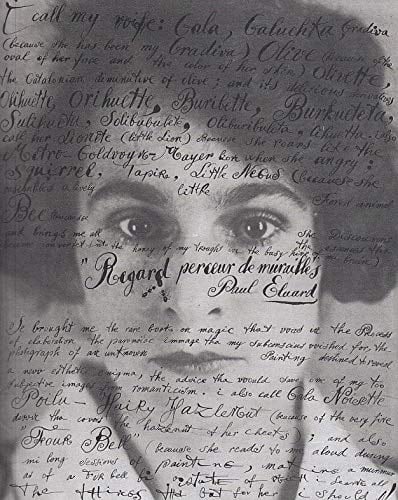 i call my wife: Gala, Galuchka Gradiva
(because she has been my Gradiva) Olive (because of the
oval of her face and the color of her skin) Olivette,
the Catalonian deminutive of olive; and its delicious derivatives
Olihuette, Orihuette, Buribette, Burkueteta,
Sulihuette, Solibubulete, Oliburibuleta, i also
call her Lionette (little lion) because she roars like the
Metro-Goldwyn-Mayer lion when she angry;
Squirrel, Tapir, Little Negus (because she
resembles a lively little forest animal
Bee because she Discovers
and brings me all the essences that
become converted into the honey of my thought in the busy hive of my brain)
"Regard perceur de murailles"
Paul Eluard
She brought me the rare book on magic that the Process
of elaboration the paranoiac immage that my subconscious wished for the
photograph of an unknown Painting destined to reveal
a new esthetic enigma; the advice that would save one of my too
subjective images from romanticism. i also call Gala Noisette
Poilu – Hairy Hazlenut (because of the very fine
down that covers the hazlenut of her cheeks); and also
"Four Bell" because she reads to me aloud during
mi long sessions of painting, making a murmur
as of a bell i learne all
the things that but for her i should